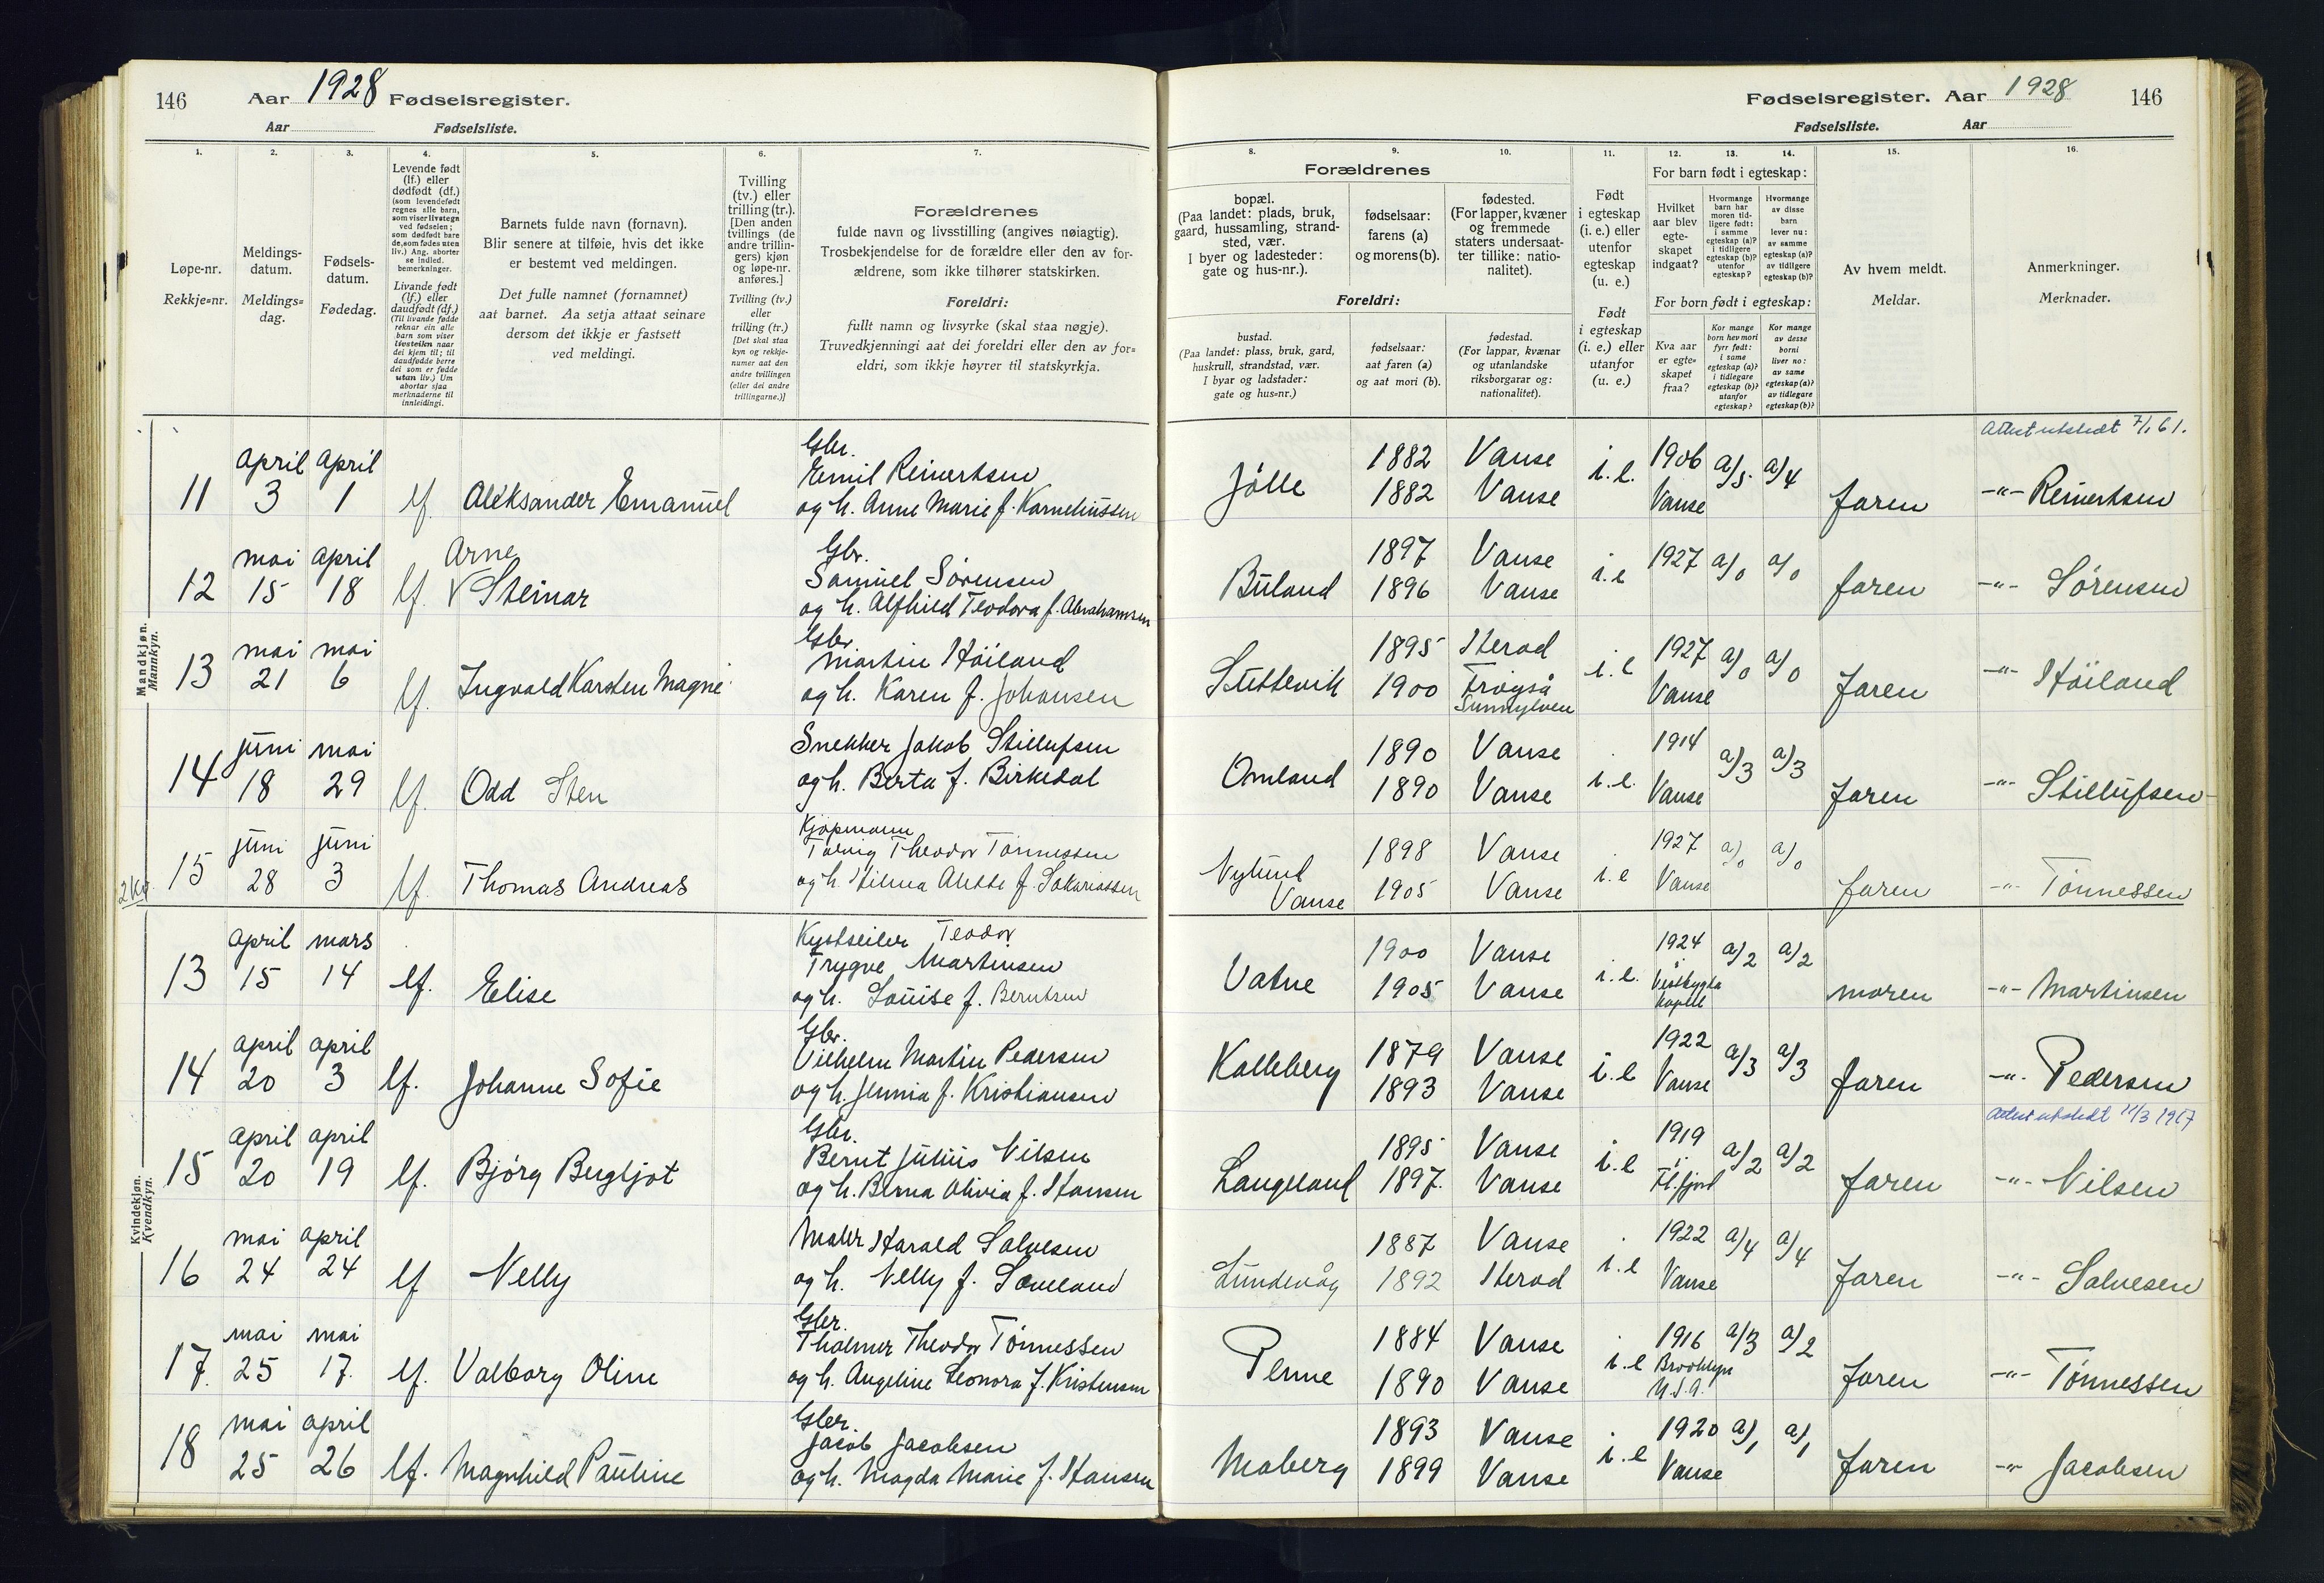 146 Aar 1928 Fødselsregister.
Aar Fødselsliste.
Fødselsregister. Aar 1928 146
Fødselsliste. Aar
1. 2. 3. 4. 5. 6. 7.
8. 9. 10. 11. 12. 13. 14. 15. 16.
Løpe-nr.
Rekkje=nr.
Meldings-
datum.
Meldings=
dag.
Fødsels-
datum.
Fødedag.
Levende født
(lf.) eller
dødfødt (df.)
(som levendefødt
regnes alle barn,
som viser livstegn
ved fødselen;
som dødfødt bare
de, som fødes uten
liv.) Ang. aborter
se indled.
bemerkninger.
Livande født
(lf.) eller
daudfødt (df.)
(Til livande fødde
reknar ein alle
barn som viser
livsteikn naar
dei kjem til; til
daudfødde berre
dei som er fødde
utan liv.) Um
abortar sjaa
merknaderne til
innleidingi.
Barnets fulde navn (fornavn).
Blir senere at tilføie, hvis det ikke
er bestemt ved meldingen.
Det fulle namnet (fornamnet)
aat barnet. Aa setja attaat seinare
dersom det ikkje er fastsett
ved meldingi.
Tvilling
(tv.) eller
trilling (tr.).
[Den anden
tvillings (de
andre trillin-
gers) kjøn
og løpe-nr.
anføres.]
Tvilling (tv.)
eller
trilling (tr.)
[Det skal staa
kyn og rekkje-
numer aat den
andre tvillingen
(eller dei andre
trillingarne.)]
Forældrenes
fulde navn og livsstilling (angives nøiagtig).
Trosbekjendelse for de forældre eller den av for-
ældrene, som ikke tilhører statskirken.
Foreldri:
fullt namn og livsyrke (skal staa nøgje).
Truvedkjenningi aat dei foreldri eller den av for=
eldri, som ikkje høyrer til statskyrkja.
Forældrenes
bopæl.
(Paa landet: plads, bruk,
gaard, hussamling, strand-
sted, vær.
I byer og ladesteder:
gate og hus-nr.).
fødselsaar:
farens (a)
og morens (b).
fødested.
(For lapper, kvæner
og fremmede
staters undersaat-
ter tillike: natio-
nalitet).
Foreldri:
bustad.
(Paa landet: plass, bruk, gard,
huskrull, strandstad, vær.
I byar og ladstader:
gate og hus=nr.)
fødselsaar:
aat faren (a)
og aat mori (b).
fødestad.
(For lappar, kvænar
og utanlandske
riksborgarar og:
nationalitet).
Født
i egteskap
(i. e.) eller
utenfor
egteskap
(u. e.)
Født
i egteskap
(i. e.) eller
utanfor
(u. e.)
For barn født i egteskap:
Hvilket
aar blev
egte-
skapet
indgaat?
Hvormange
barn har
moren tid-
ligere født:
i samme
egteskap (a)?
i tidligere
egteskap (b)?
utenfor
egteskap?
Hvormange
av disse
barn
lever nu:
av samme
egteskap (a)?
av tidligere
egteskap (b)?
For born født i egteskap:
Kva aar
er egte=
skapet
fraa?
Kor mange
born hev mori
fyrr født:
i same
egteskap (a)?
i tidlegare
egteskap (b)?
utanfor
egteskap?
Kor mange
av desse
borni
liver no:
av same
egteskap (a)?
av tidlegare
egteskap (b)?
Av hvem meldt.
Meldar.
Anmerkninger.
Merknader.
Mandkjøn.
Mannkyn.
Attest utstedt 7/1 61.
11 april 3 april 1 lf. Aleksander Emanuel
Gbr.
Emil Reinertsen
og h. Anne Marie f. Korneliussen
Jölle 1882 Vanse i.e. 1906 a/5 a/4
1882 Vanse Vanse faren -"- Reinertsen
12 mai 15 april 18 lf. Arne
V Steinar
Gbr.
Samuel Sörensen
og h. Alfhild Teodora f. Abrahamsen
Buland 1897 Vanse i.e 1927 a/0 a/0
1896 Vanse faren -"- Sörensen
13 mai 21 mai 6 lf. Ingvald Karsten Magne
Gbr
Martin Höiland
og h. Karen f. Johansen
1895 Herad i.e 1927 a/0 a/0
1900 Vanse faren -"- Höiland
Sunnylven
14 juni 18 mai 29 lf. Odd Sten
Snekker Jakob Stillufsen
og h. Berta f. Birkedal
Omland 1890 Vanse i.e. 1914 a/3 a/3
1890 Vanse Vanse faren -"- Stillufsen
2 Kv.
15 juni 28 juni 3 lf Thomas Andreas
Kjöpmann
Theodor Tönnessen
og h. Hilma Alette f. Sakariassen
Nylund
Vanse
1898 Vanse i.e 1927 a/0 a/0
1905 Vanse Vanse faren -"- Tönnessen
Kvindekjøn.
Kvendkyn.
13 april 15 mars 14 lf. Elise
Kystseiler Teodor
Trygve Martinsen
og h. Louise f. Berntsen
Vatne 1900 Vanse i.e. 1924 a/2 a/2
1905 Vanse Vestbygda
kapell moren -"- Martinsen
14 april 20 april 3 lf. Johanne Sofie
Gbr.
Vilhelm Martin Pedersen
og h. Jennia f. Kristiansen
Kalleberg 1879 Vanse i.e 1922 a/3 a/3
1893 Vanse Vanse faren -"- Pedersen
Attest utstedt 11/3 1967
15 april 20 april 19 lf. Bjórg Bergljot
Gbr.
Bernt Julius Nilsen
og h. Berna Olivia f. Hansen
Langeland 1895 Vanse i.e 1919 a/2 a/2
1897 Vanse Fl.fjord faren -"- Nilsen
16 mai 24 april 24 lf Nelly
Maler Harald Salvesen
og h. Nelly f. Loveland
Lundevåg 1887 Vanse i.e 1922 a/4 a/4
1892 Herad Vanse faren -"- Salvesen
17. mai 25 mai 17. lf. Valborg Oline
Gbr.
Tholmer Theodor Tönnessen
og h. Angeline Leonora f. Kristensen
Penne 1884 Vanse i.e 1916 a/3 a/2
1890 Vanse Brooklyn
U.S.A. faren -"- Tönnessen
18 mai 25 april 26 lf. Magnhild Pauline
Gbr.
Jacob Jacobsen
og h. Magda Marie f. Hansen
Moberg 1893 Vanse i.e 1920 a/1 a/1
1899 Vanse Vanse faren -"- Jacobsen